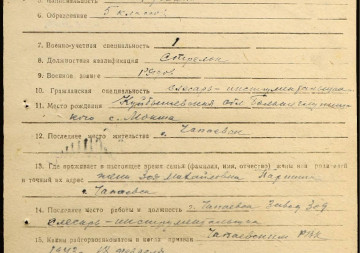 6. Образование 5 классов
7. Военно-учетная специальность 1
8. Должностная квалификация Стрелок
9. Военное звание Рядов
10. Гражданская специальность слесарь-инструментальщик
11. Место рождения Куйбышевская обл
с. Мокша
12. Последнее место жительства г. Чапаевск
13. Где проживает в настоящее время семья (фамилия, имя, отчество) жены или родителей
и точный их адрес жена Зоя Михайловна
г. Чапаевск
14. Последнее место работы и должность г. Чапаевск Завод
слесарь-инструментальщик
15. Каким райгорвоенкоматом и когда призван Чапаевским РВК